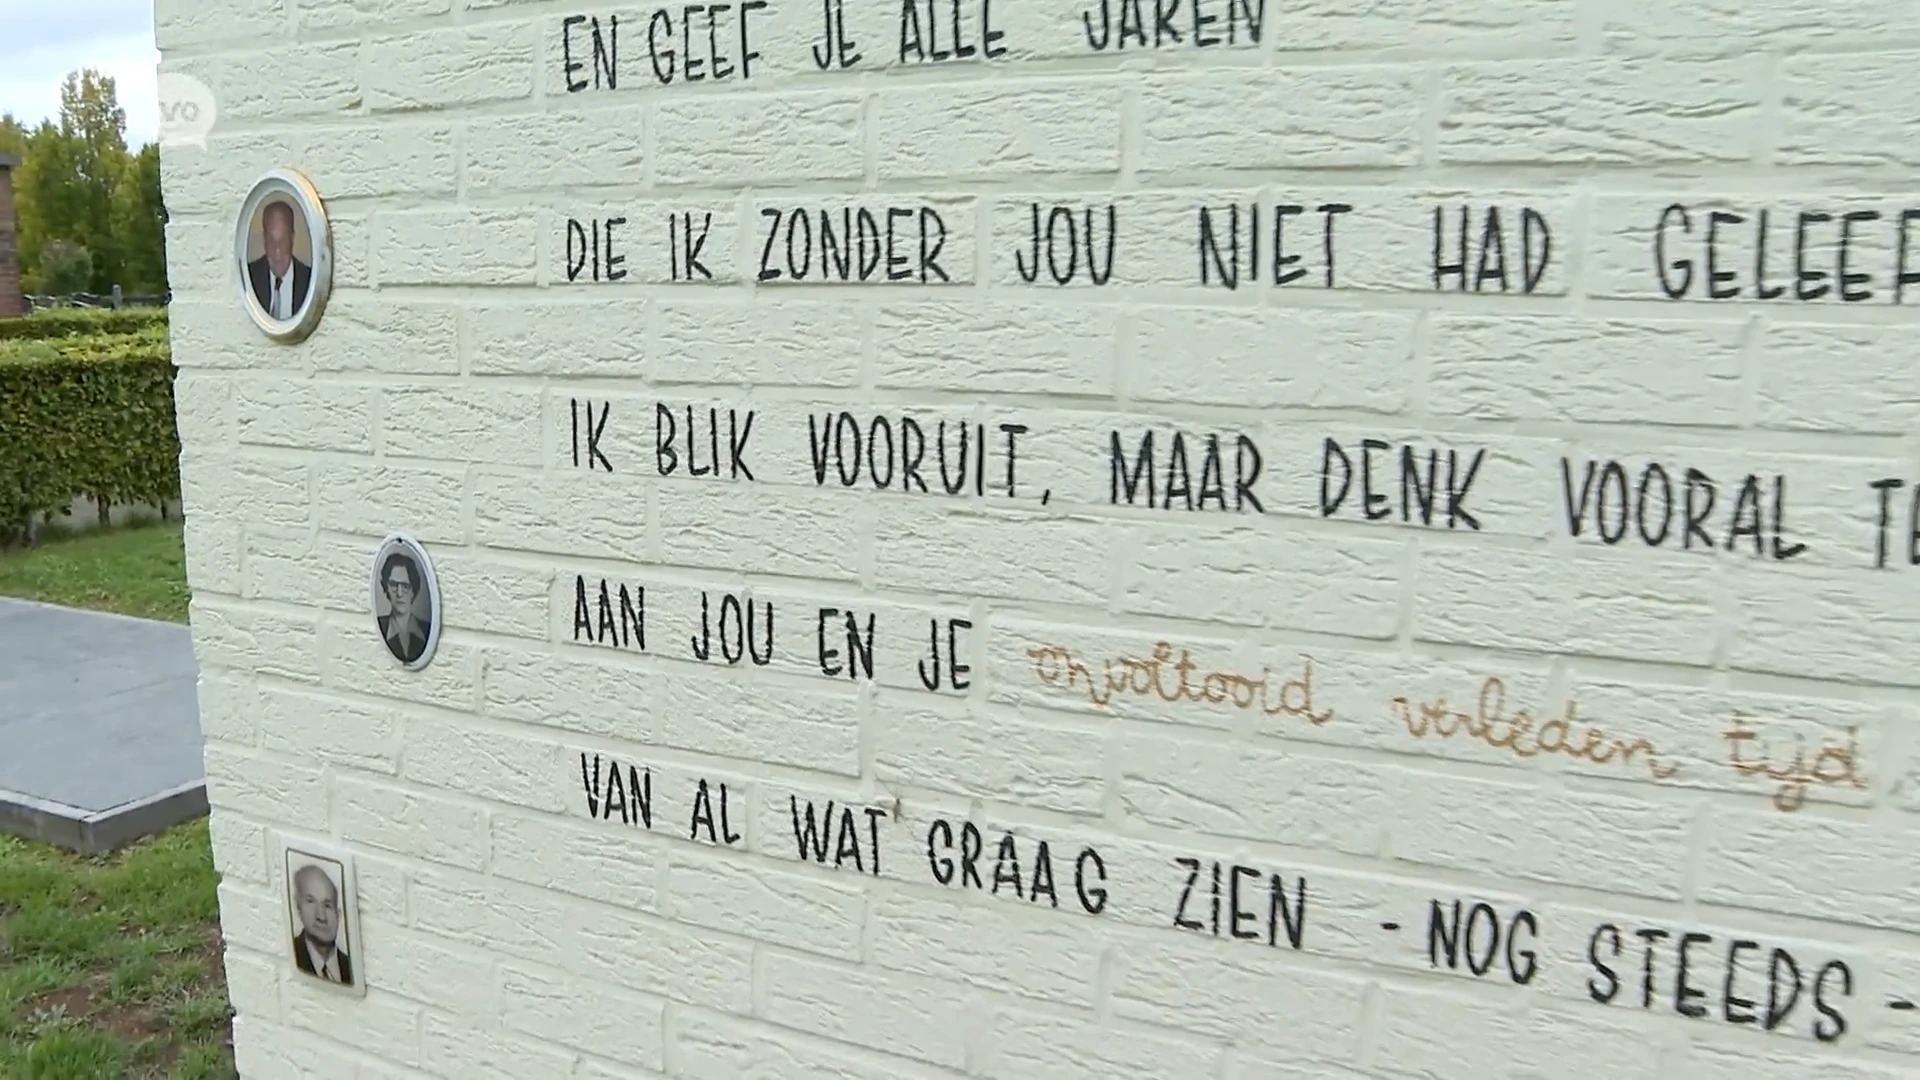 vo
EN GEEF JE ALLE JAREN
DIE IK ZONDER JOU NIET HAD
IK BLIK VOORUIT, MAAR DENK VOORAL
AAN JOU EN JE onvoltooid verleden tijd
VAN AL WAT GRAAG ZIEN - NOG STEEDS -